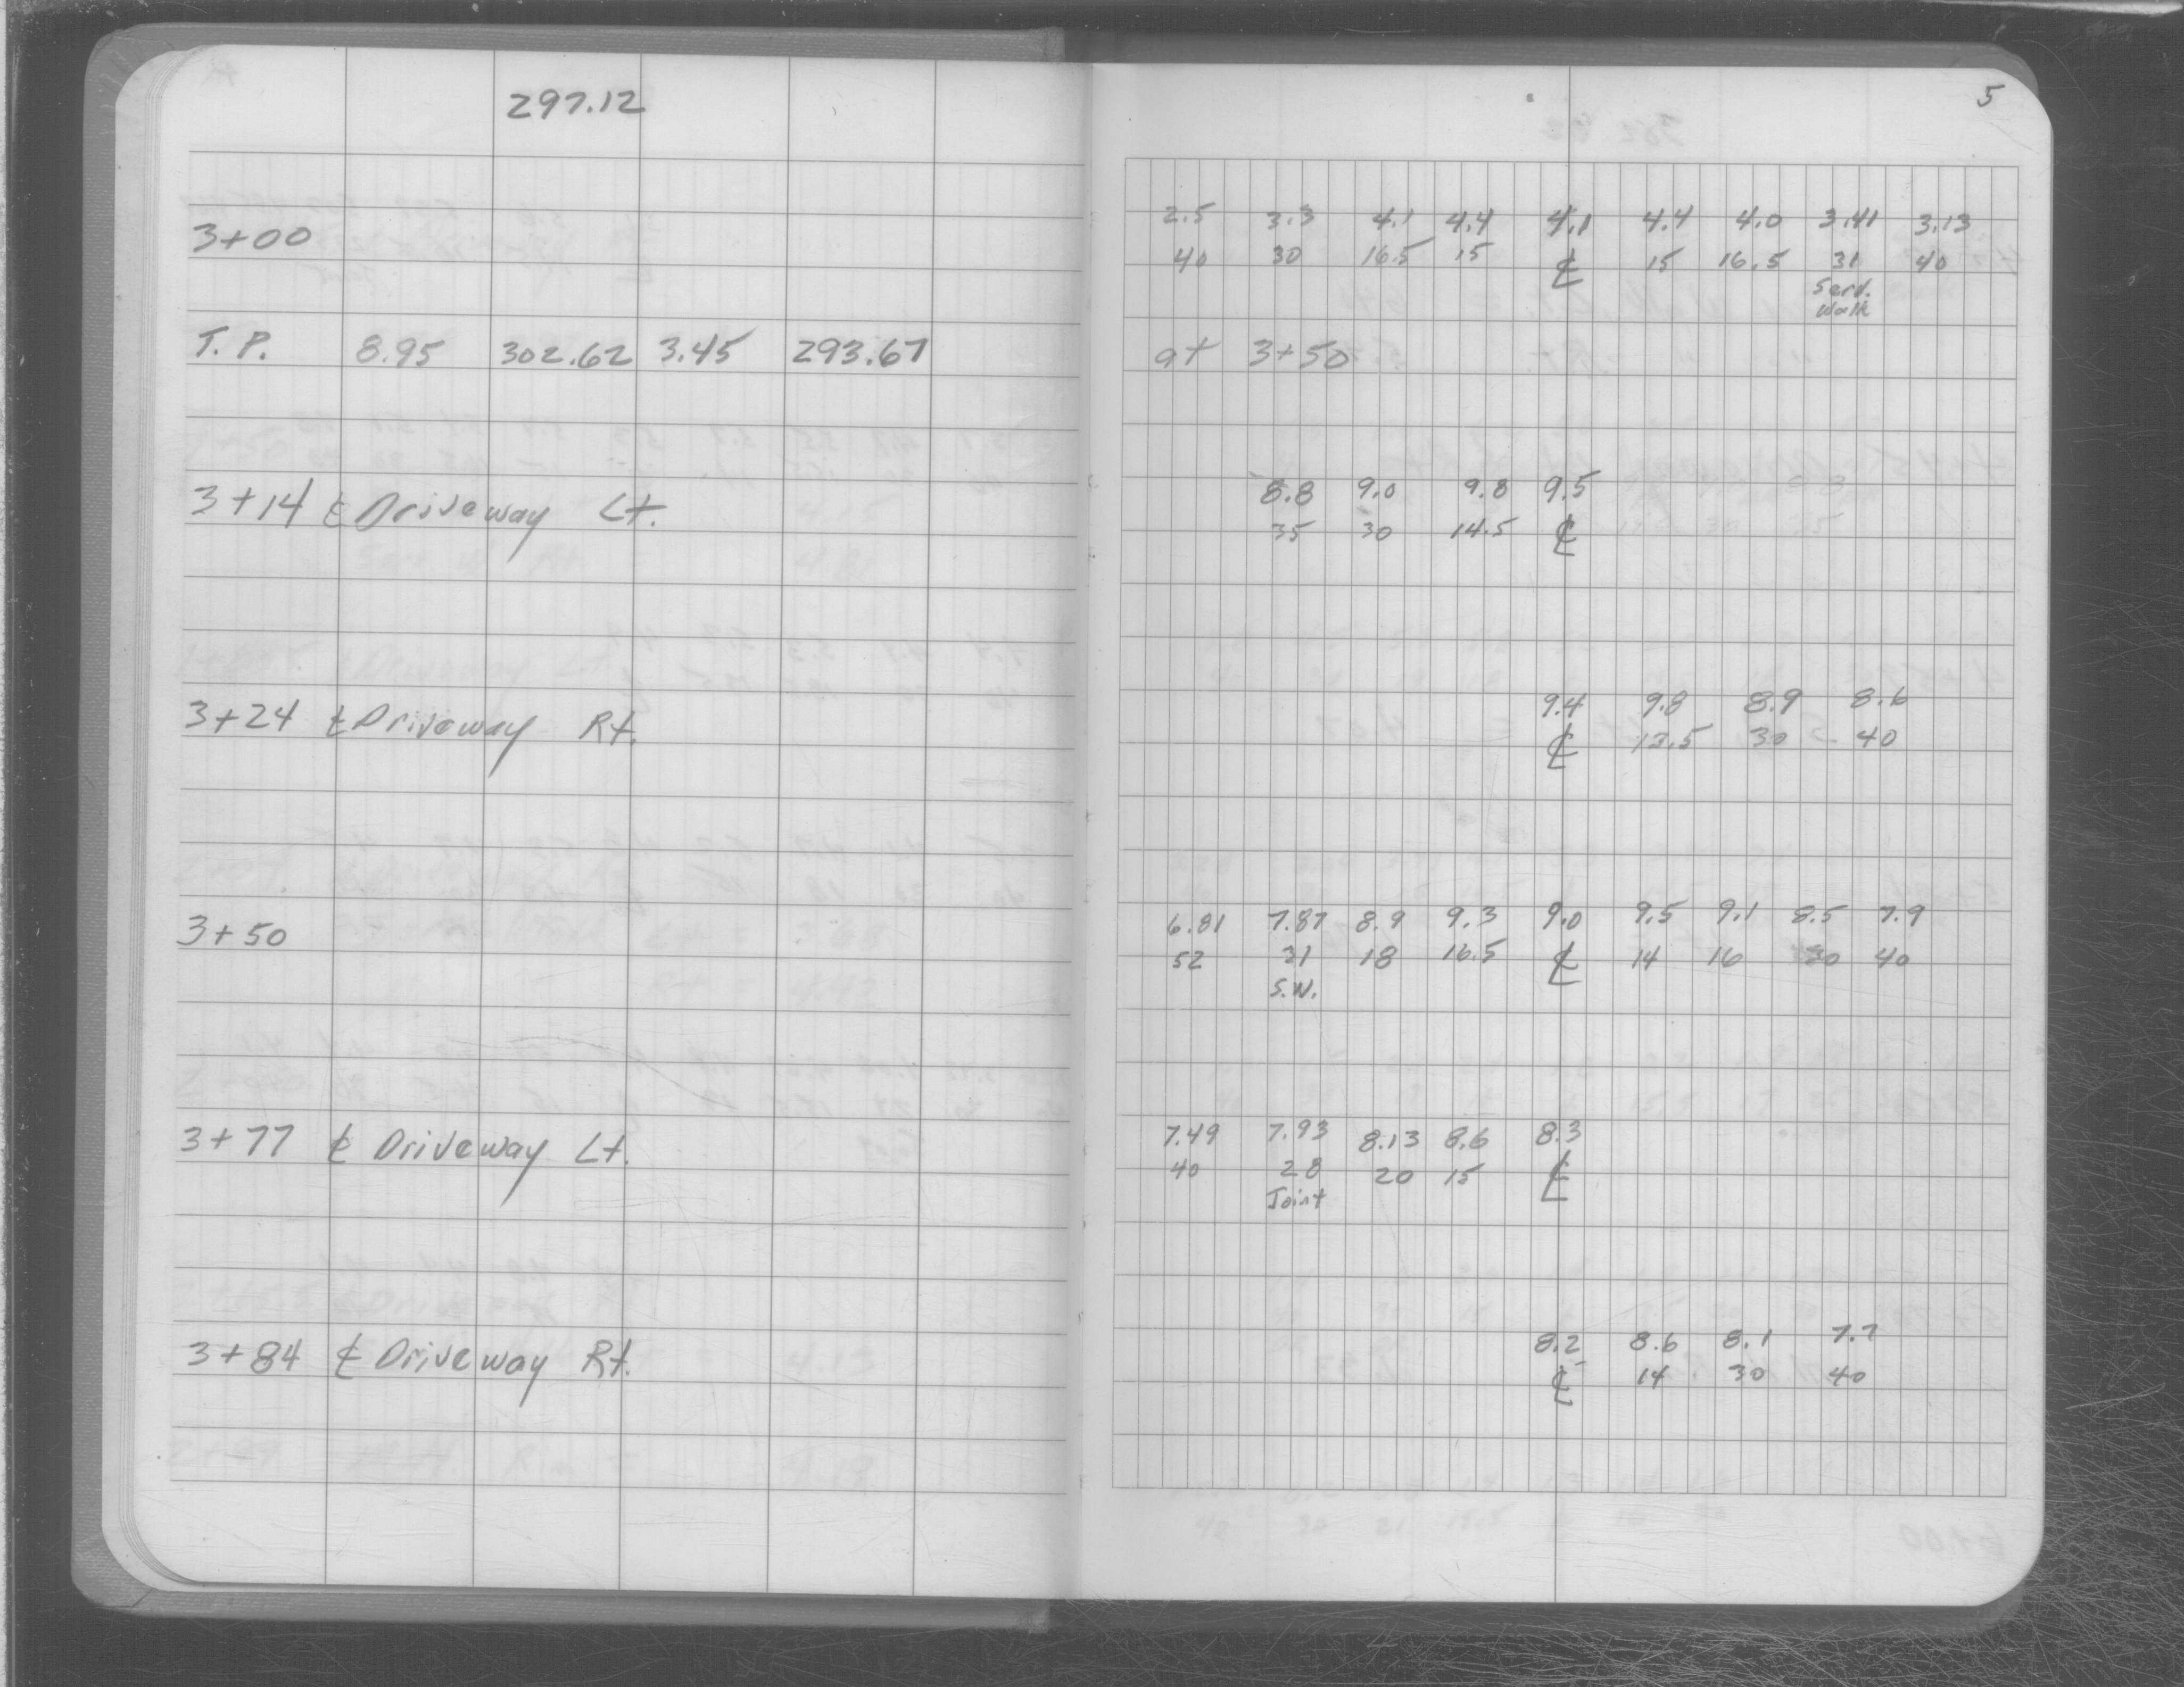 297.12
5
2.5 3.3 4.1 4.4 4.1 4.4 4.0 3.41 3.13
3+00
40 30 16.5 15 ℄ 15 16.5 31 40
Serv.
Walk
T.P. 8.95 302.62 3.45 293.67 at 3+50
8.8 9.0 9.8 9.5
3+14 ℄ Driveway Lt.
35 30 14.5 ℄
9.4 9.8 8.9 8.6
3+24 ℄ Driveway Rt.
℄ 13.5 30 40
6.81 7.87 8.9 9.3 9.0 9.5 9.1 8.5 7.9
3+50
52 31 18 16.5 ℄ 14 16 30 40
S.W.
7.49 7.93 8.13 8.6 8.3
3+77 ℄ Driveway Lt.
40 28 20 15 ℄
Joint
8.2 8.6 8.1 7.7
3+84 ℄ Driveway Rt.
℄ 14 30 40